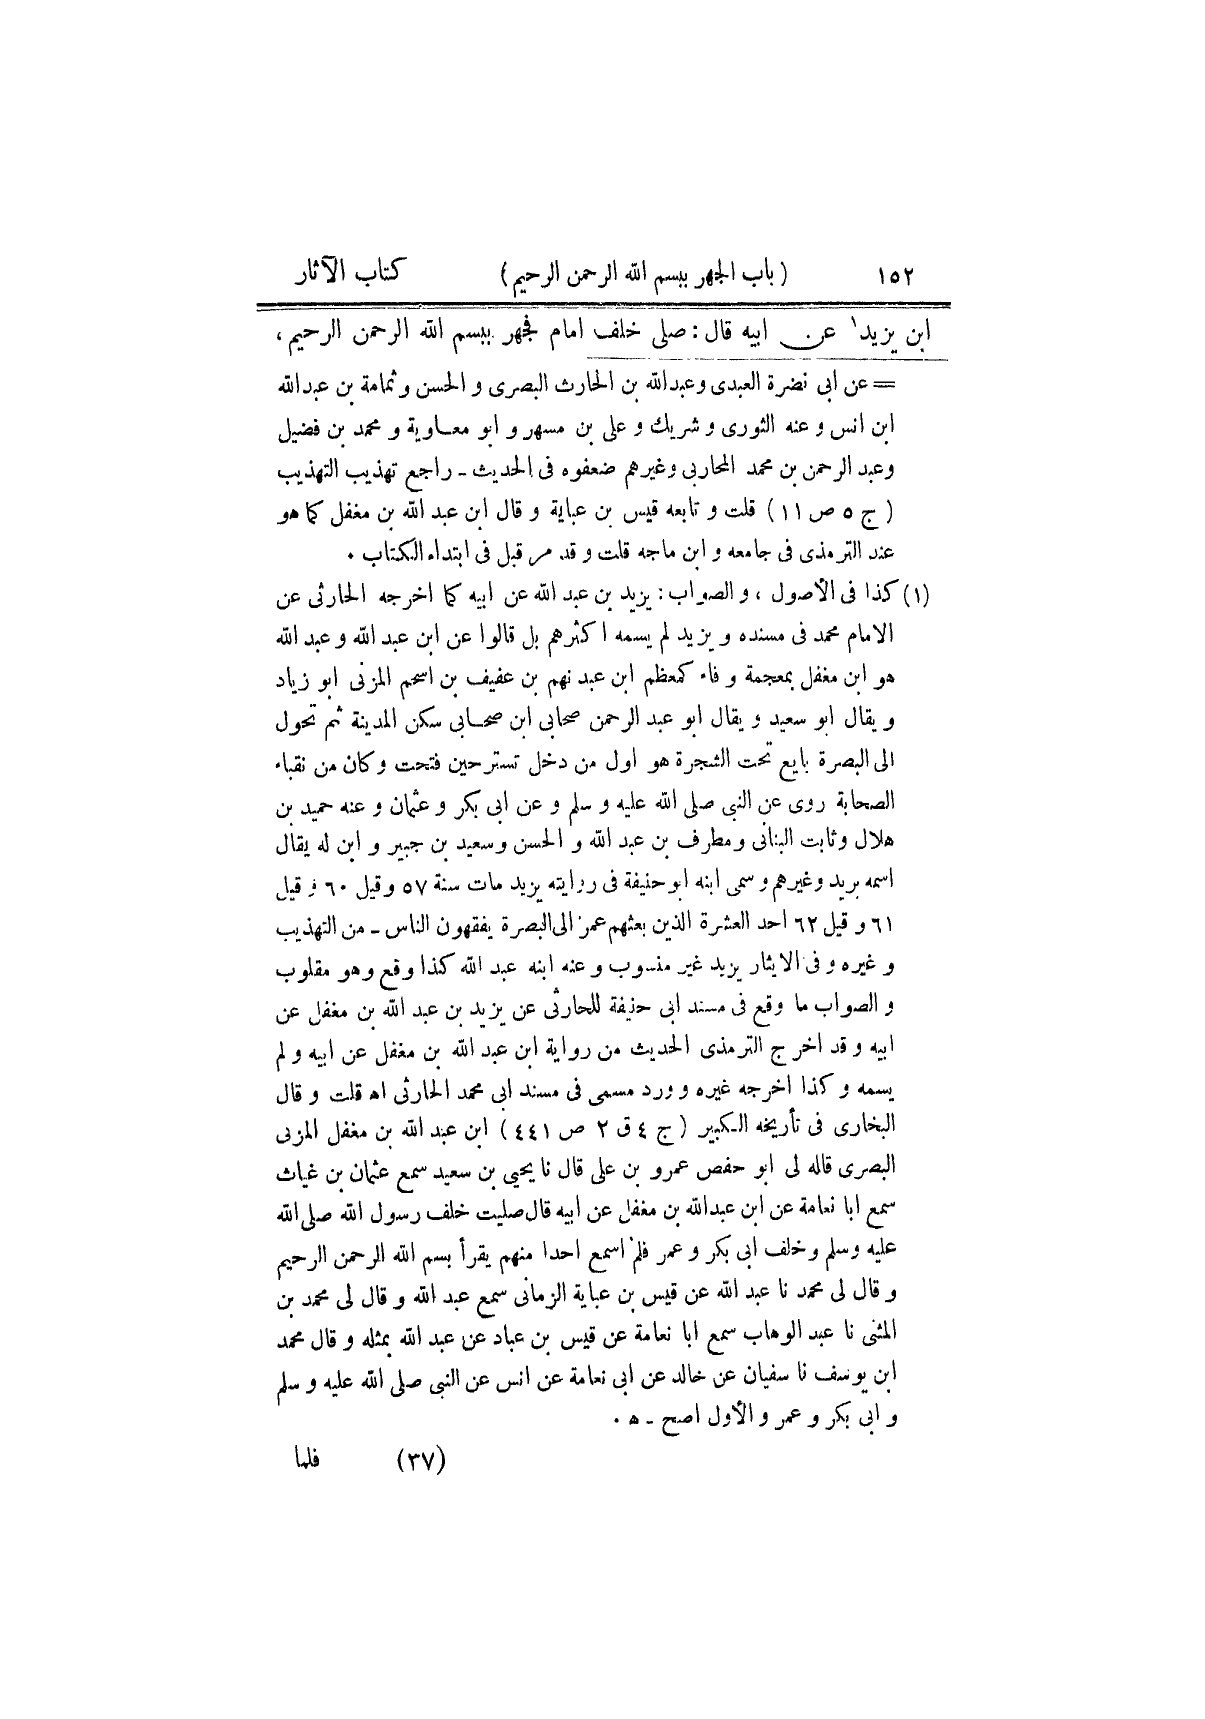 ١٥٢ ( باب الجهر ببسم الله الرحمن الرحيم ) كتاب الآثار
ابن يزيد١ عن ابيه قال : صلى خلف امام فجهر ببسم الله الرحمن الرحيم ،
= عن ابى نضرة العبدى وعبدالله بن الحارث البصرى و الحسن و ثمامة بن عبدالله
ابن انس و عنه الثورى و شريك و على بن مسهر و ابو معاوية و محمد بن فضيل
وعبد الرحمن بن محمد المحاربى وغيرهم ضعفوه فى الحديث ـ راجع تهذيب التهذيب
( ج ٥ ص ١١ ) قلت و تابعه قيس بن عباية و قال ابن عبد الله بن مغفل كما هو
عند الترمذى فى جامعه و ابن ماجه قلت و قد مر قبل فى ابتداء الكتاب .
(١) كذا فى الأصول ، و الصواب : يزيد بن عبد الله عن ابيه كما اخرجه الحارثى عن
الامام محمد فى مسنده و يزيد لم يسمه اكثرهم بل قالوا عن ابن عبد الله و عبد الله
هو ابن مغفل بمعجمة و فاء كمعظم ابن عبد نهم بن عفيف بن اسحم المزنى ابو زياد
و يقال ابو سعيد و يقال ابو عبد الرحمن صحابى ابن صحابى سكن المدينة ثم تحول
الى البصرة بايع تحت الشجرة هو اول من دخل تستر حين فتحت وكان من نقباء
الصحابة روى عن النبى صلى الله عليه و سلم و عن ابى بكر و عثمان و عنه حميد بن
هلال وثابت البنانى ومطرف بن عبد الله و الحسن وسعيد بن جبير و ابن له يقال
اسمه يزيد وغيرهم وسمى ابنه ابو حنيفة فى روايته يزيد مات سنة ٥٧ وقيل ٦٠ و قيل
٦١ و قيل ٦٢ احد العشرة الذين بعثهم عمر الى البصرة يفقهون الناس ـ من التهذيب
و غيره و فى الايثار يزيد غير منسوب و عنه ابنه عبد الله كذا وقع وهو مقلوب
و الصواب ما وقع فى مسند ابى حنيفة للحارثى عن يزيد بن عبد الله بن مغفل عن
ابيه و قد اخرج الترمذى الحديث من رواية ابن عبد الله بن مغفل عن ابيه و لم
يسمه و كذا اخرجه غيره و ورد مسمى فى مسند ابى محمد الحارثى اه قلت و قال
البخارى فى تأريخه الكبير ( ج ٤ ق ٢ ص ٤٤١ ) ابن عبد الله بن مغفل المزنى
البصرى قاله لى ابو حفص عمرو بن على قال نا يحيى بن سعيد سمع عثمان بن غياث
سمع ابا نعامة عن ابن عبدالله بن مغفل عن ابيه قال صليت خلف رسول الله صلى الله
عليه وسلم وخلف ابى بكر و عمر فلم اسمع احدا منهم يقرأ بسم الله الرحمن الرحيم
و قال لى محمد نا عبد الله عن قيس بن عباية الزمانى سمع عبد الله و قال لى محمد بن
المثنى نا عبد الوهاب سمع ابا نعامة عن قيس بن عباد عن عبد الله بمثله و قال محمد
ابن يوسف نا سفيان عن خالد عن ابى نعامة عن انس عن النبى صلى الله عليه و سلم
و ابى بكر و عمر و الأول اصح ـ ه .
(٣٧) فلما